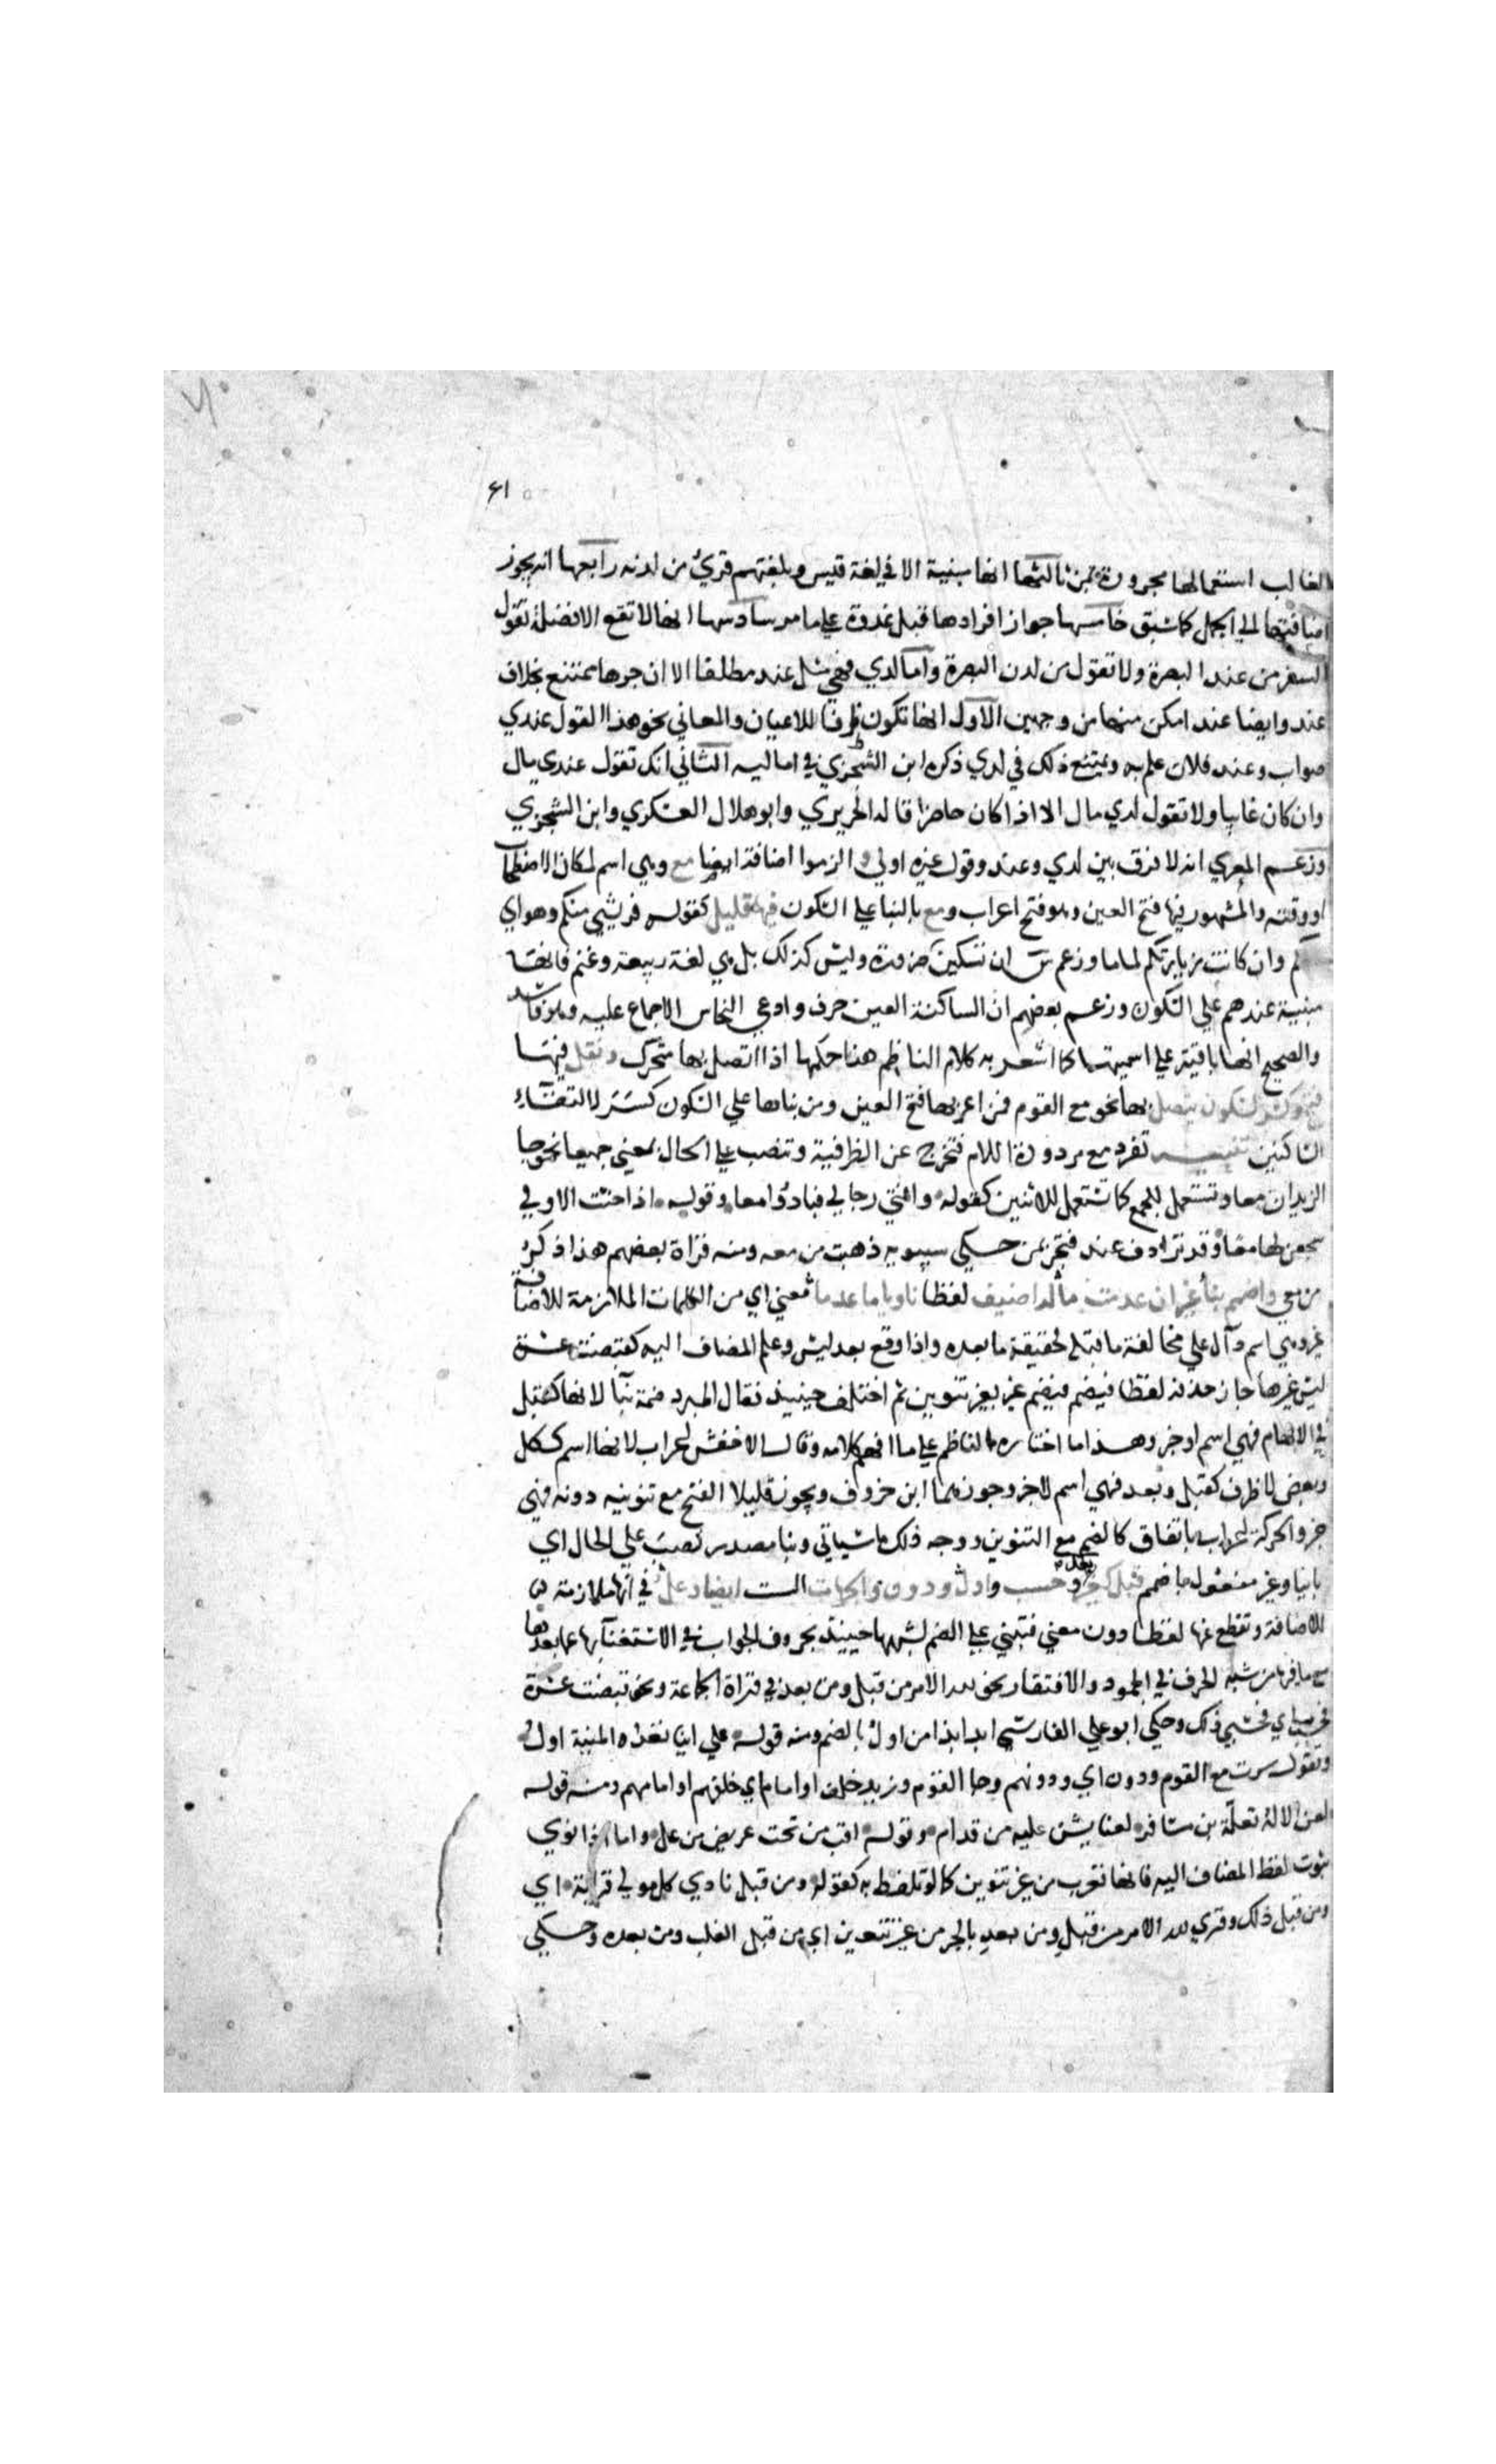 ٤١
الغالب استعمالها مجرورة بمن ثالثها انها مبنية الا في لغة قيس وبلغتهم قرئ من لدنه رابعها انه يجوز
اضافتها الي الجمل كما سبق خامسها جواز افرادها قبل غدوة علي ما مر سادسها انها لا تقع الا فضلة تقول
السفر من عند البصرة ولا تقول من لدن البصرة واما لدي فهي مثل عند مطلقا الا ان جرها ممتنع بخلاف
عند وايضا عند امكن منها من وجهين الاول انها تكون ظرفا للاعيان والمعاني نحو هذا القول عندي
صواب وعند فلان علم به ويمتنع ذلك في لدي ذكره ابن الشجري في اماليه الثاني انك تقول عندي مال
وان كان غايبا ولا تقول لدي مال الا اذا كان حاضرا قاله الحريري وابو هلال العسكري وابن الشجري
وزعم المعري انه لا فرق بين لدي وعند وقول غيره اولي و الزموا اضافة ايضا مع وهي اسم لمكان الاصطحاب
او وقته والمشهور فيها فتح العين وهو فتح اعراب ومع بالبنا علي السكون فيها قليل كقوله فريشي منكم وهواي
معكم وان كانت زيارتكم لماما وزعم س ان تسكين ضرورة وليس كذلك بل هي لغة ربيعة وغنم فانها
مبنية عندهم علي السكون وزعم بعضهم ان الساكنة العين حرف وادعي النحاس الاجماع عليه وهو فاسد
والصحيح انها باقية علي اسميتها كما اشعر به كلام الناظم هذا حكمها اذا اتصل بها متحرك ونقل فيها
فتح وكسر لسكون يتصل بها نحو مع القوم فمن اعربها فتح العين ومن بناها علي السكون كسر لالتقاء
الساكنين تنبيه تفرد مع مردودة اللام فتخرج عن الظرفية وتنصب علي الحال بمعني جميعا نحو جا
الزيدان معا وتستعمل للجمع كما تستعمل للاثنين كقوله وافني رجالي فبادوا معا وقوله اذا حنت الاولي
سجعن لها معا وقد ترادف عند فتجر بمن حكي سيبويه ذهبت من معه ومنه قراة بعضهم هذا ذكر
من معي واضمم بنا غيرا ان عدمت ما له اضيف لفظا ناويا ما عدما فمعني اي من الكلمات الملازمة للاضافة
غير وهي اسم دال علي مخالفة ما قبله لحقيقة ما بعده واذا وقع بعد ليس وعلم المضاف اليه كقبضت عشرة
ليس غيرها جاز حذفه لفظا فيضم غير بغير تنوين ثم اختلف حينيذ فقال المبرد ضمة بنا لانها كقبل
في الابهام فهي اسم او خبر وهذا ما اختاره الناظم علي ما افهمه كلامه وقال الاخفش اعراب لانها اسم ككل
وبعض لا ظرف كقبل وبعد فهي اسم لا خبر وجوزهما ابن خروف ويجوز قليلا الفتح مع تنوينه دونه فهي
خبر والحركة اعراب باتفاق كالضم مع التنوين ووجه ذلك ما سياتي وبنا مصدر نصب علي الحال اي
بانيا وغير مفعول باضمم قبل كغير بعد وحسب واول ودون والجهات الست ايضا وعل في انها ملازمة
للاضافة وتقطع عنها لفظا دون معني فتبني علي الضم لشبهها حينيذ بحروف الجواب في الاستغنا بها عما بعدها
مع ما فيها من شبه الحرف في الجمود والافتقار نحو لله الامر من قبل ومن بعد في قراة الجماعة ونحو قبضت عشرة
فحسب اي فحسبي ذلك وحكي ابو علي الفارسي ابدا بذا من اول بالضم ومنه قوله علي اينا تغدو المنية اول
وتقول سرت مع القوم ودون اي ودونهم وجا القوم وزيد خلف او امام اي خلفهم او امامهم ومنه قوله
لعن الاله تعلة بن مسافر لعنا يشن عليه من قدام وقوله اقب من تحت عريض من عل واما اذا نوي
ثبوت لفظ المضاف اليه فانها تعرب من غير تنوين كما لو تلفظ به كقوله ومن قبل نادي كل مولي قرابة اي
ومن قبل ذلك وقري لله الامر من قبل ومن بعد بالجر من غير تنوين اي من قبل الغلب ومن بعده وحكي